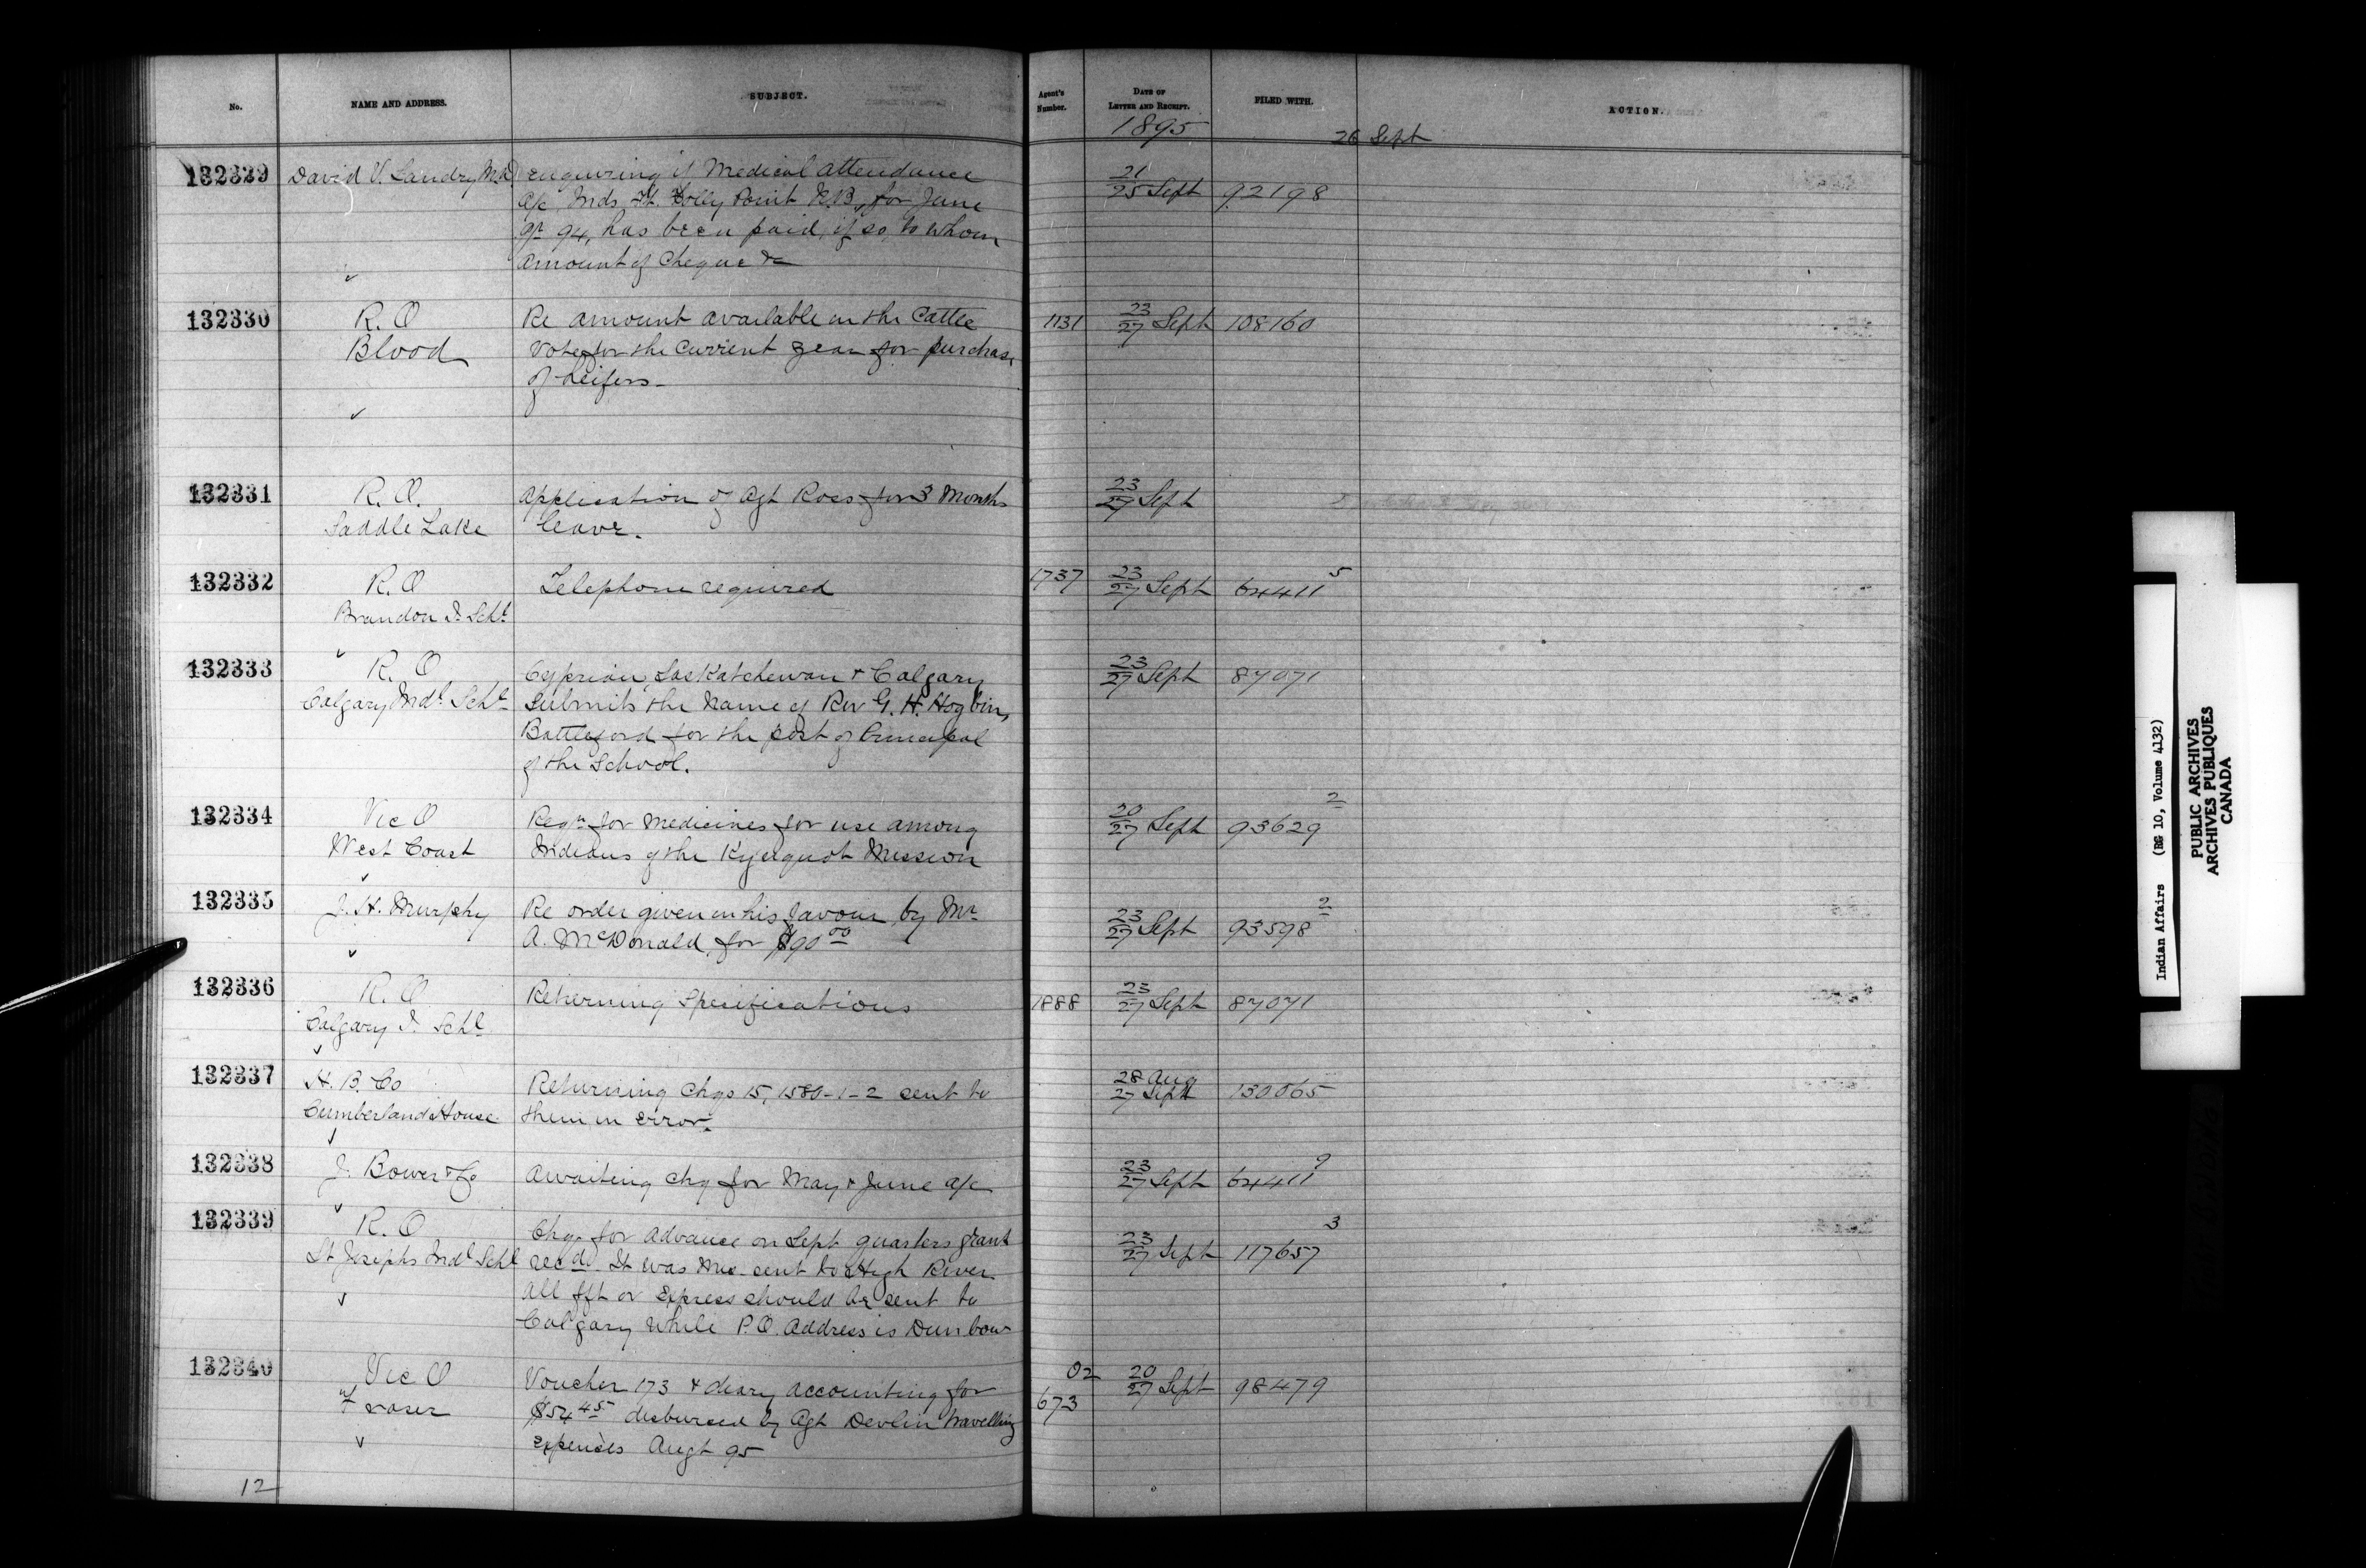 No. NAME AND ADDRESS. SUBJECT. Agent's Number. DATE OF LETTER AND RECEIPT. FILED WITH. ACTION.
1895 26 Sept
132329 David V. Landry M.D enquiring if Medical attendance 21/25 Sept 92198
a/c Inds. Folly Point N.B, for June
qr 94, has been paid, if so, to whom
amount of Cheque &c
132330 R.O Re amount available in the Cattle 1131 23/27 Sept 108160
Blood Vote for the current year for purchase
of heifers
132331 R.O. Application of Agt Ross for 3 Months 23/27 Sept
Saddle Lake leave.
132332 R.O Telephone required 1737 23/27 Sept 64411 5
Brandon I. Schl
132333 R.O Cyprian, Saskatchewan & Calgary 23/27 Sept 87071
Calgary Indl Schl Submits the Name of Rev G. H. Hogbin,
Battleford for the post of Principal
of the School.
132334 Vic O Reqn for Medicines for use among 20/27 Sept 93629 2
West Coast Indians of the Kyuquot Mission
132335 J. H. Murphy Re order given in his favour by Mr 23/27 Sept 93598 2
A. McDonald, for $90 00
132336 R.O Returning Specifications 1888 23/27 Sept 87071
Calgary I. Schl
132337 H. B. Co Returning Chqs 15, 1580-1-2 sent to 28 Aug/27 Sept 130065
Cumberland House them in error.
132338 J. Bower & Co Awaiting chq for May & June a/c 23/27 Sept 64411 9
132339 R.O Chq. for advance on Sept quarters grant 23/27 Sept 117657 3
St Josephs Indl Schl recd. It was sent to High River
All fft or Express should be sent to
Calgary while P.O. Address is Dunbow
132340 Vic O Voucher 173 & diary accounting for 02 673 20/27 Sept 98479
Fraser $54 45 disbursed by Agt Devlin travelling
expenses Augt 95
12
Indian Affairs (RG 10, Volume 4132)
PUBLIC ARCHIVES
ARCHIVES PUBLIQUES
CANADA